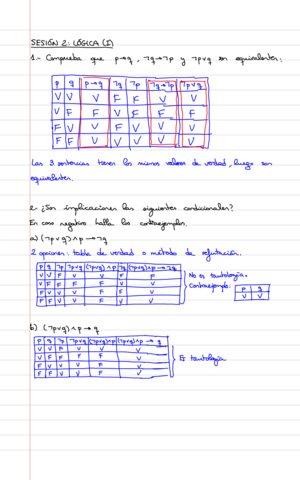 SESIÓN 2: LÓGICA (I)
1.- Comprueba que p→q, ¬q→¬p y ¬p∨q son equivalentes:
p q p→q ¬q ¬p ¬q→¬p ¬p∨q
V V V F F V V
V F F V F F F
F V V F V V V
F F V V V V V
Las 3 sentencias tienen los mismos valores de verdad, luego son
equivalentes.
2.- ¿Son implicaciones las siguientes condicionales?
En caso negativo halla los contraejemplos.
a) (¬p∨q)∧p→¬q
2 opciones: tabla de verdad o método de refutación.
p q ¬p ¬p∨q (¬p∨q)∧p ¬q (¬p∨q)∧p→¬q
V V F V V F F
V F F F F V V
F V V V F F V
F F V V F V V
No es tautología.
Contraejemplo:
p q
V V
b) (¬p∨q)∧p→q
p q ¬p ¬p∨q (¬p∨q)∧p (¬p∨q)∧p→q
V V F V V V
V F F F F V
F V V V F V
F F V V F V
Es tautología